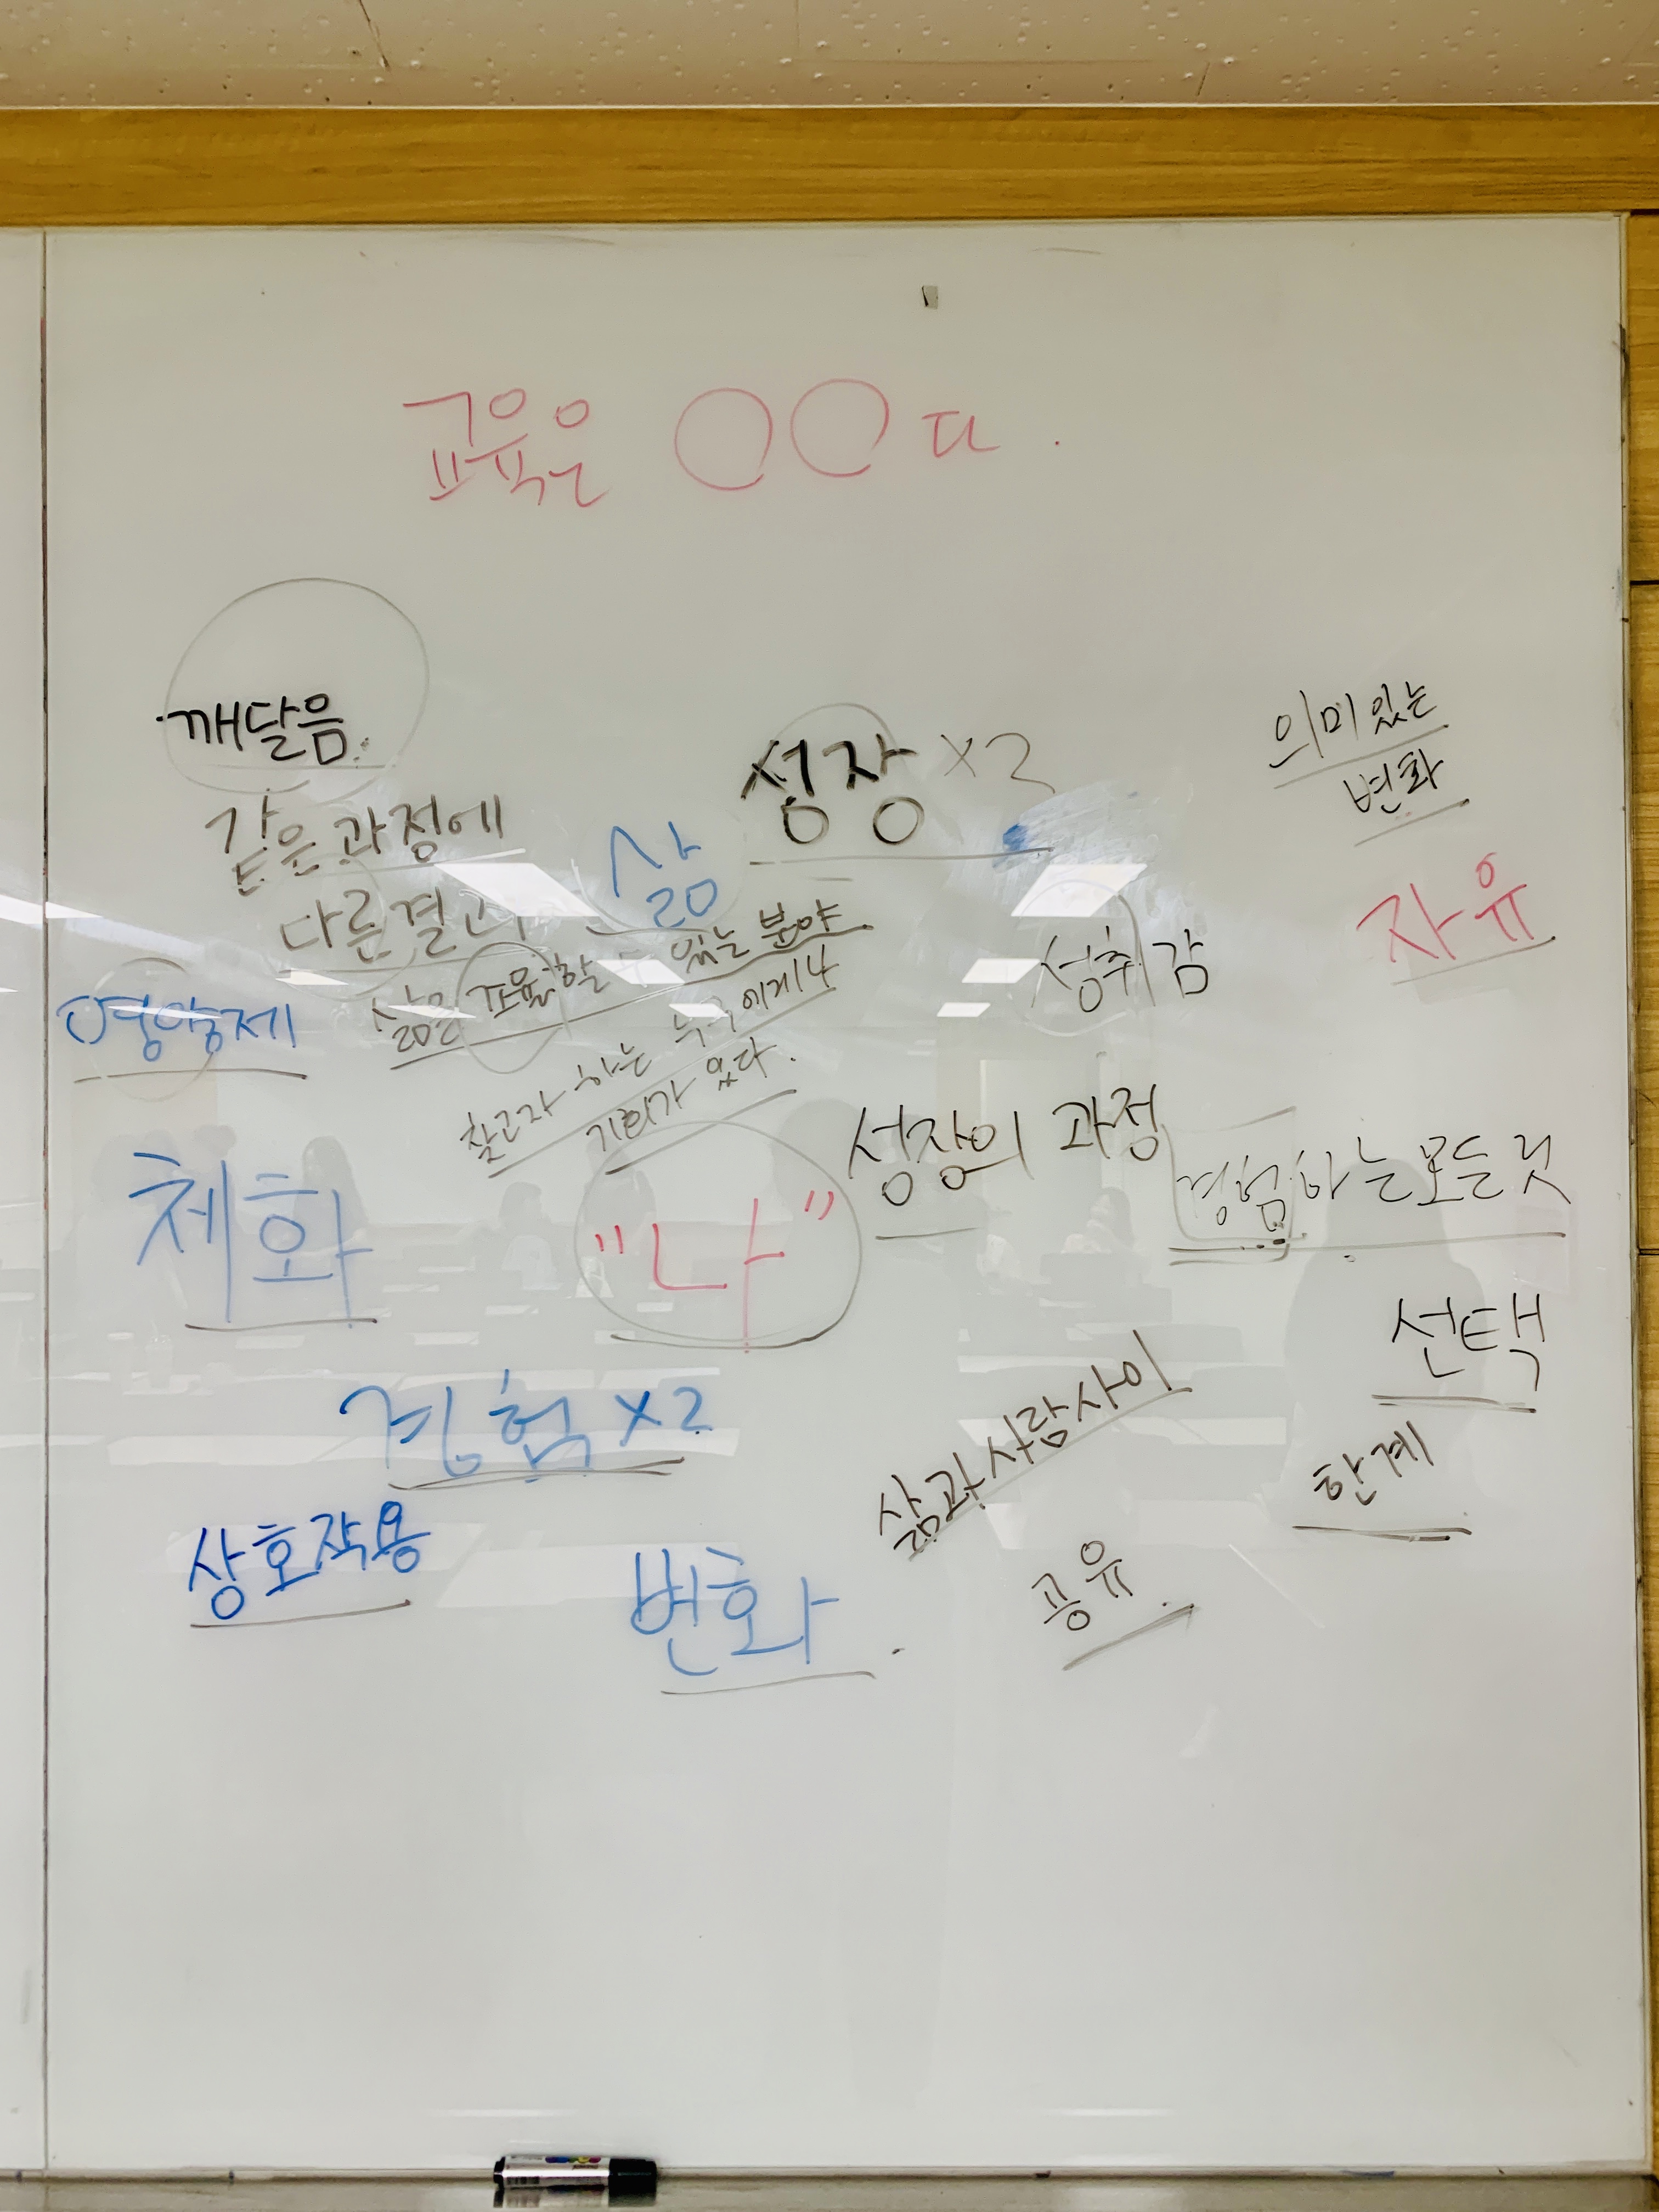 교육은 ○○다.
깨달음
성장 ×3
의미있는
변화
같은 과정에
다른 결과
삶
자유
성취감
영양제
삶을 교육할 수 있는 분야
찾고자 하는 누구에게나
기회가 있다.
성장의 과정
경험하는 모든 것
체화
"나"
선택
경험 ×2
삶과 사람 사이
한계
상호작용
변화
공유